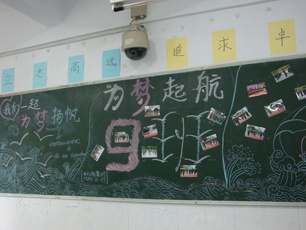 高 送
追 求 卓
我们一起
为梦扬帆
为梦起航
9